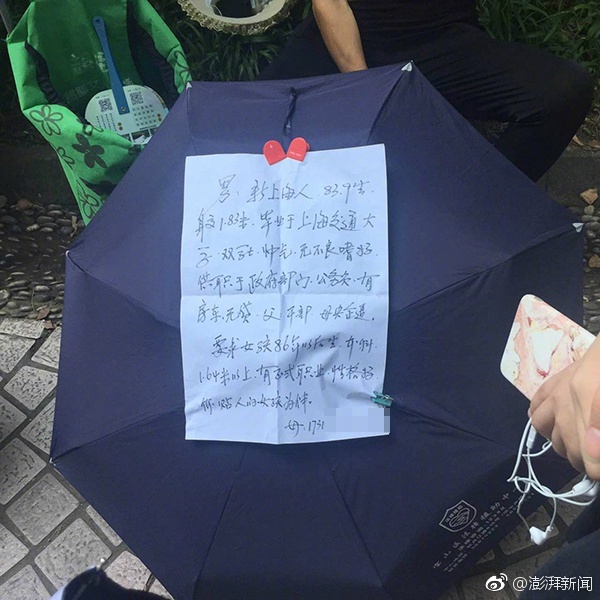 男、新上海人 83.9生.
身高1.83米.毕业于上海交通大
学.双硕士.帅气.无不良嗜好
供职于政府部门.公务员.有
房车.无贷.父.干部 母央企退.
要求女孩86年以后生.本科
1.64米以上.有正式职业.性格好
体贴人的女孩为伴。
母.1731
@澎湃新闻